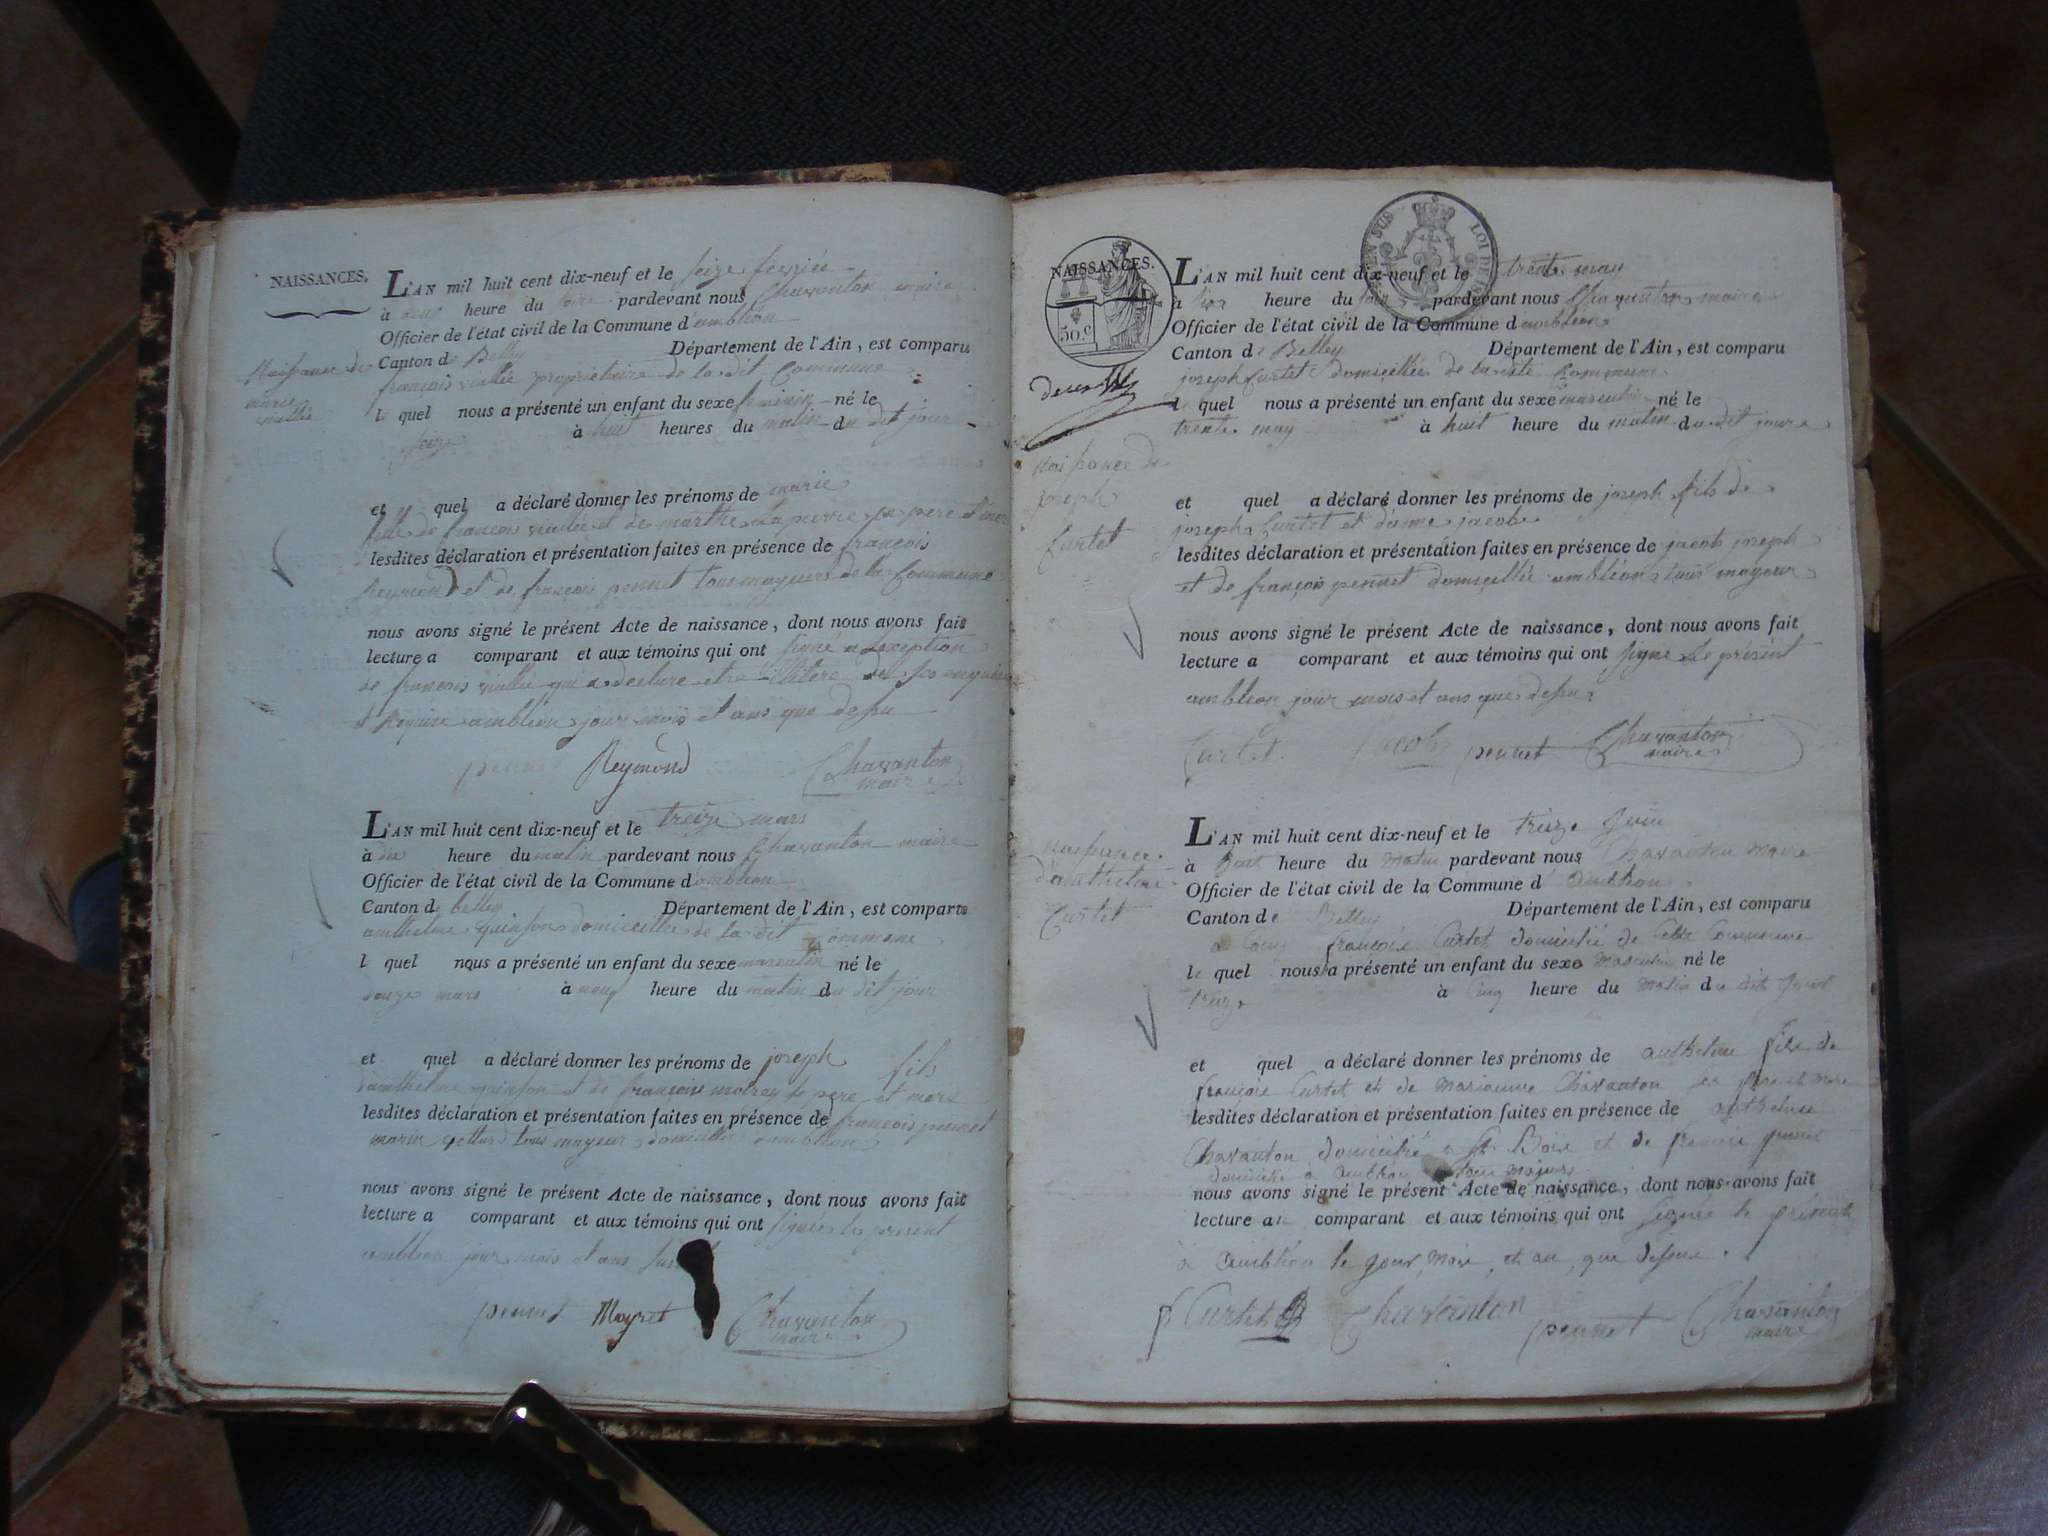 NAISSANCES.
L'AN mil huit cent dix-neuf et le seize fevrier
à deux heure du soir pardevant nous Chavanton maire
Officier de l'état civil de la Commune d'amblion
Canton de Belley Département de l'Ain, est comparu
françois viallie propriétaire de la dit Commune
l quel nous a présenté un enfant du sexe feminin né le
seize à huit heures du matin du dit jour
Naissance de
marie
viallie
et quel a déclaré donner les prénoms de marie
fille de francois viallie et de marthe Lapierre
lesdites déclaration et présentation faites en présence de françois
Reymond et de françois pennet tous mayeurs de la Commune
nous avons signé le présent Acte de naissance, dont nous avons fait
lecture a comparant et aux témoins qui ont signé a lexception
de francois viallie qui a declare etre
Require amblion jour mois et ans que desu
pennet Reymond Chavanton
maire
L'AN mil huit cent dix-neuf et le treize mars
à dix heure du matin pardevant nous Chavanton maire
Officier de l'état civil de la Commune d amblion
Canton de belley Département de l'Ain, est comparu
anthelme quinson domiciellie de la dit Commune
l quel nous a présenté un enfant du sexe né le
douze mars à neuf heure du matin du dit jour
et quel a déclaré donner les prénoms de joseph fils
danthelme quinson et de françoise moirey pere et mere
lesdites déclaration et présentation faites en présence de françois pennet
marin tous mayeur domicillie amblion
nous avons signé le présent Acte de naissance, dont nous avons fait
lecture a comparant et aux témoins qui ont signée le present
amblion jour mois et ans
pennet Moyret Chavanton
maire
NAISSANCES.
50.c
LOI DE
L'AN mil huit cent dix-neuf et le trente may
à heure du soir pardevant nous Chavanton maire
Officier de l'état civil de la Commune d amblion
Canton de Belley Département de l'Ain, est comparu
joseph Curtet domiciellié de la dite Commune
le quel nous a présenté un enfant du sexe né le
trente may à huit heure du matin du dit jour
Naissance de
joseph
Curtet
et quel a déclaré donner les prénoms de joseph fils de
joseph Curtet et d'ame jacob
lesdites déclaration et présentation faites en présence de jacob joseph
et de françois pennet domiciellié amblion tous mayeur
nous avons signé le présent Acte de naissance, dont nous avons fait
lecture a comparant et aux témoins qui ont signe le présent
amblion jour mois et ans que desu
Curtet jacob pennet Chavanton
maire
L'AN mil huit cent dix-neuf et le treize Juin
à huit heure du matin pardevant nous Chavanton Maire
Officier de l'état civil de la Commune d' Amblion
Canton de Belley Département de l'Ain, est comparu
françois Curtet domicilié de cette Commune
le quel nous a présenté un enfant du sexe masculin né le
treize à cinq heure du matin du dit Jour
naissance
d'anthelme
Curtet
et quel a déclaré donner les prénoms de anthelme fils de
françois Curtet et de marianne Chavanton ses pere et mere
lesdites déclaration et présentation faites en présence de anthelme
Chavanton domicilié a St. Bois et de francois pennet
domicilié a amblion tous majeurs
nous avons signé le présent Acte de naissance, dont nous avons fait
lecture au comparant et aux témoins qui ont signée le présent
à amblion le jour, mois, et an, que dessus.
f Curtet Chavanton pennet Chavanton
maire